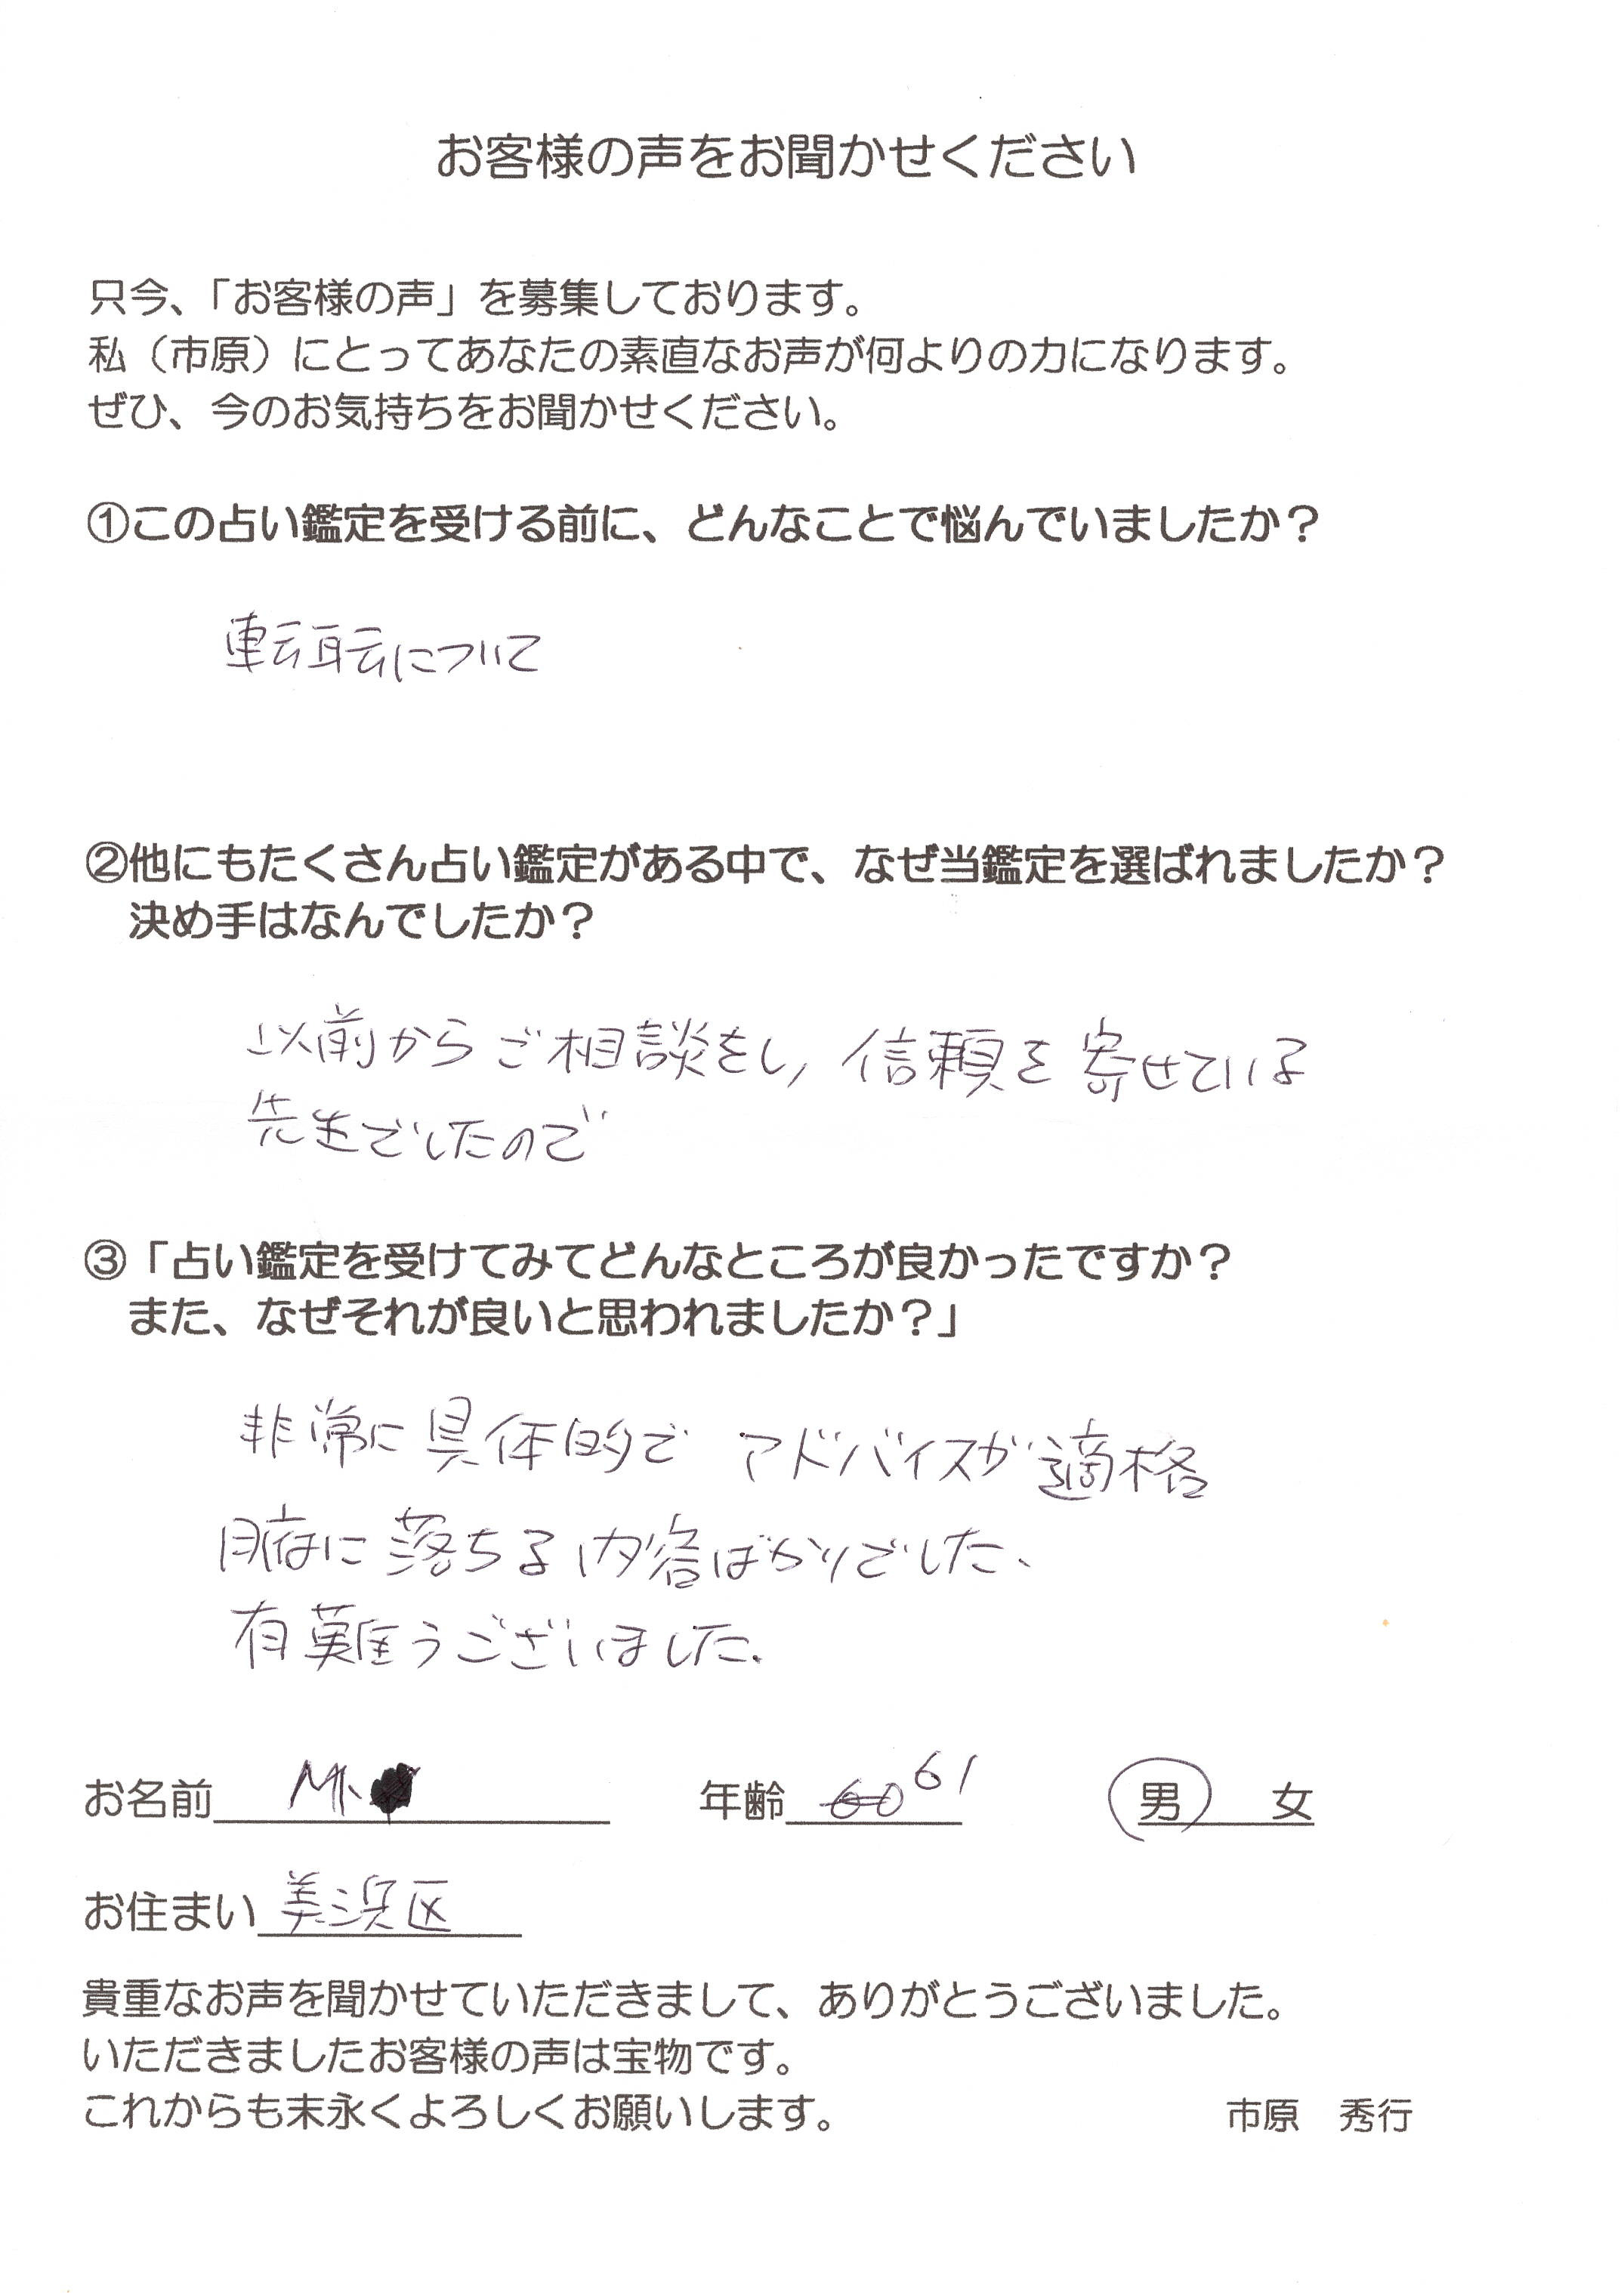 お客様の声をお聞かせください
只今、「お客様の声」を募集しております。
私（市原）にとってあなたの素直なお声が何よりの力になります。
ぜひ、今のお気持ちをお聞かせください。
①この占い鑑定を受ける前に、どんなことで悩んでいましたか？
転耺について
②他にもたくさん占い鑑定がある中で、なぜ当鑑定を選ばれましたか？
決め手はなんでしたか？
以前からご相談をし、信頼を寄せている
先生でしたので
③「占い鑑定を受けてみてどんなところが良かったですか？
また、なぜそれが良いと思われましたか？」
非常に具体的で アドバイスが適格
腑に落ちる内容ばかりでした、
有難うございました.
お名前 年齢 60 61 男 女
お住まい 美浜区
貴重なお声を聞かせていただきまして、ありがとうございました。
いただきましたお客様の声は宝物です。
これからも末永くよろしくお願いします。 市原 秀行